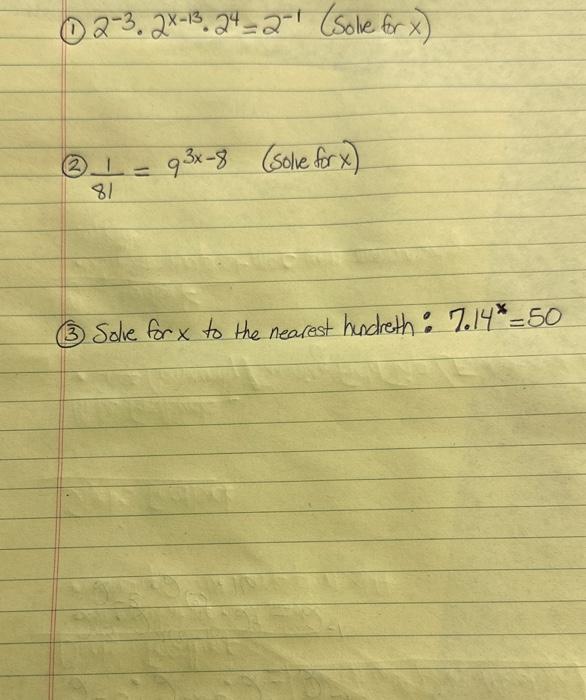 ① 2⁻³ · 2ˣ⁻¹³ · 2⁴ = 2⁻¹ (Solve for x)
② 1/81 = 9³ˣ⁻⁸ (Solve for x)
③ Solve for x to the nearest hundreth : 7.14ˣ = 50